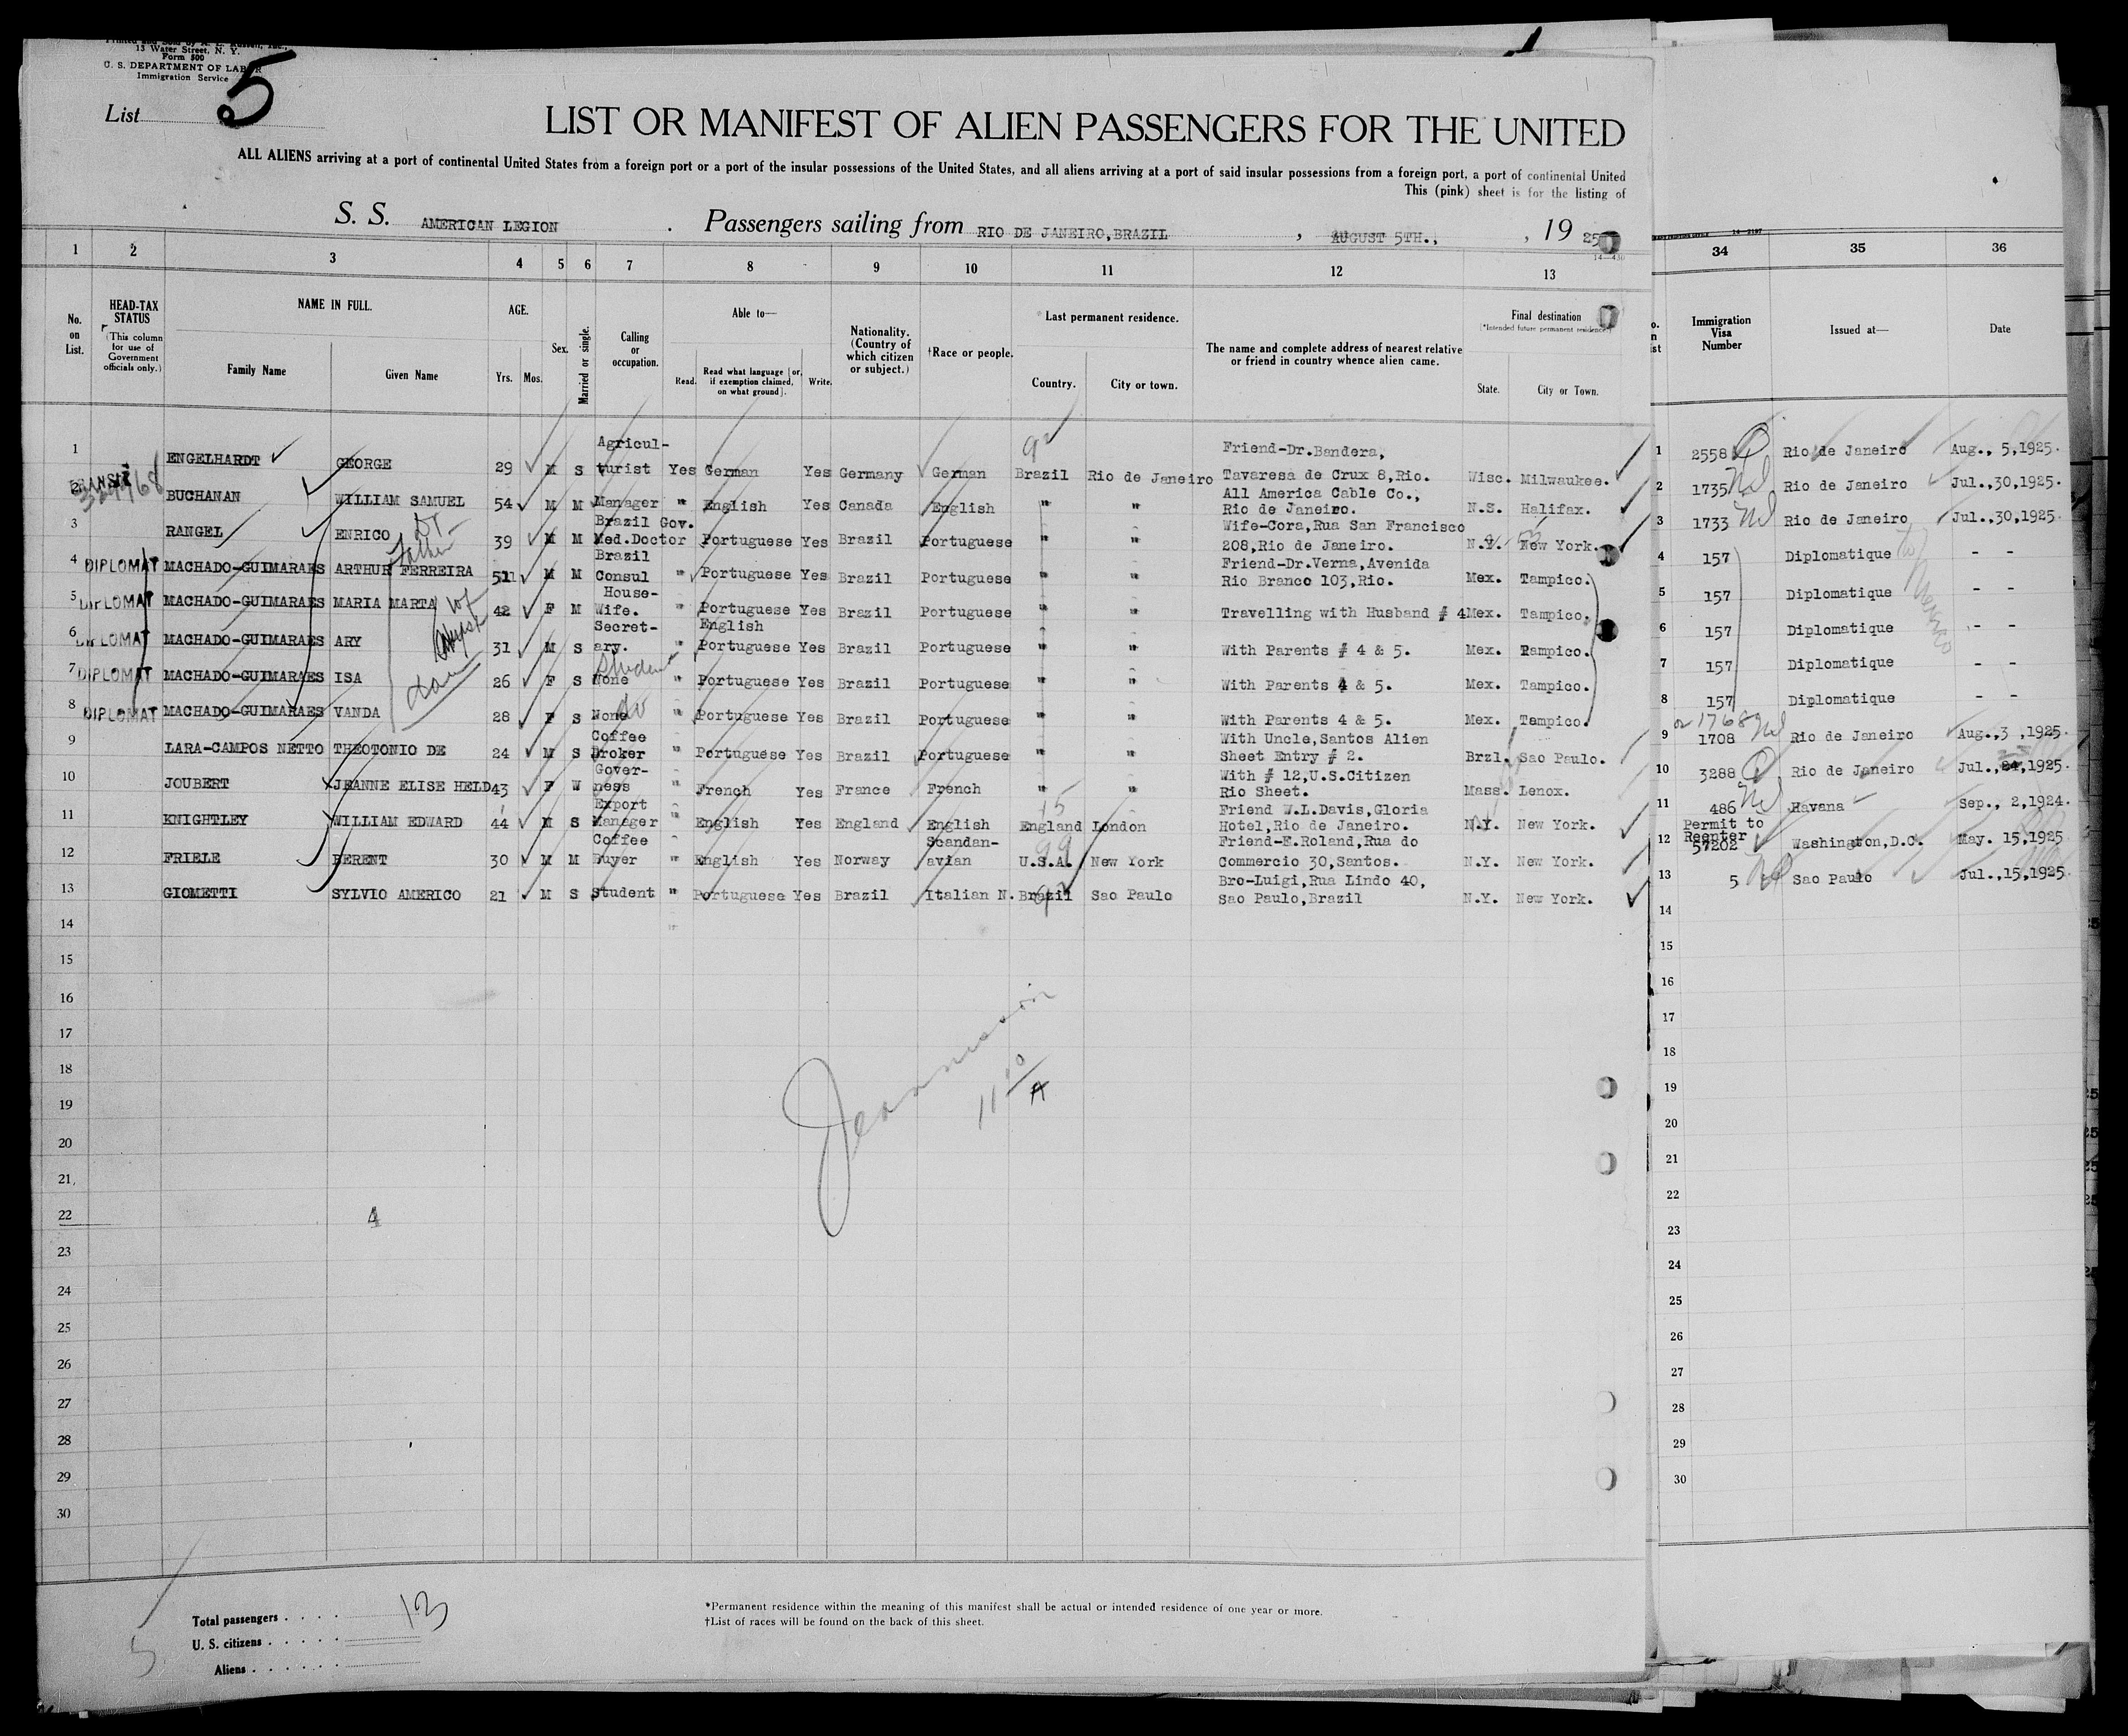 13 Water Street, N. Y.
Form 500
U. S. DEPARTMENT OF LABOR
Immigration Service
List 5
LIST OR MANIFEST OF ALIEN PASSENGERS FOR THE UNITED
ALL ALIENS arriving at a port of continental United States from a foreign port or a port of the insular possessions of the United States, and all aliens arriving at a port of said insular possessions from a foreign port, a port of continental United
This (pink) sheet is for the listing of
S. S. AMERICAN LEGION . Passengers sailing from RIO DE JANEIRO,BRAZIL , AUGUST 5TH., , 19 25
1 2 3 4 5 6 7 8 9 10 11 12 13 34 35 36
No. on List. HEAD-TAX STATUS (This column for use of Government officials only.) NAME IN FULL. Family Name Given Name AGE. Yrs. Mos. Sex. Married or single. Calling or occupation. Able to— Read. Read what language [or, if exemption claimed, on what ground]. Write. Nationality. (Country of which citizen or subject.) †Race or people. *Last permanent residence. Country. City or town. The name and complete address of nearest relative or friend in country whence alien came. Final destination (*Intended future permanent residence.) State. City or Town. Immigration Visa Number Issued at— Date
1 ENGELHARDT GEORGE 29 M S Agricul-turist Yes German Yes Germany German Brazil Rio de Janeiro Friend-Dr.Bandera, Tavaresa de Crux 8,Rio. Wisc. Milwaukee. 1 2558 Rio de Janeiro Aug., 5,1925.
2 TRANSIT BUCHANAN WILLIAM SAMUEL 54 M M Manager " English Yes Canada English " " All America Cable Co., Rio de Janeiro. N.S. Halifax. 2 1735 Rio de Janeiro Jul.,30,1925.
3 RANGEL ENRICO 39 M M Brazil Gov. Med.Doctor Portuguese Yes Brazil Portuguese " " Wife-Cora,Rua San Francisco 208,Rio de Janeiro. N.Y. New York. 3 1733 Rio de Janeiro Jul.,30,1925.
4 DIPLOMAT MACHADO-GUIMARAES ARTHUR FERREIRA Father 51 M M Brazil Consul " Portuguese Yes Brazil Portuguese " " Friend-Dr.Verna,Avenida Rio Branco 103,Rio. Mex. Tampico. 4 157 Diplomatique - -
5 DIPLOMAT MACHADO-GUIMARAES MARIA MARTA 42 F M House-Wife. " Portuguese Yes Brazil Portuguese " " Travelling with Husband # 4 Mex. Tampico. 5 157 Diplomatique - -
6 DIPLOMAT MACHADO-GUIMARAES ARY 31 M S Secret-ary. " English Portuguese Yes Brazil Portuguese " " With Parents # 4 & 5. Mex. Tampico. 6 157 Diplomatique - -
7 DIPLOMAT MACHADO-GUIMARAES ISA 26 F S None Student " Portuguese Yes Brazil Portuguese " " With Parents 4 & 5. Mex. Tampico. 7 157 Diplomatique - -
8 DIPLOMAT MACHADO-GUIMARAES VANDA 28 F S None do " Portuguese Yes Brazil Portuguese " " With Parents 4 & 5. Mex. Tampico. 8 157 Diplomatique - -
9 LARA-CAMPOS NETTO THEOTONIO DE 24 M S Coffee Broker " Portuguese Yes Brazil Portuguese " " With Uncle,Santos Alien Sheet Entry # 2. Brzl. Sao Paulo. 9 or 1768 1708 Rio de Janeiro Aug.,3 ,1925.
10 JOUBERT JEANNE ELISE HELD 43 F W Gover-ness French Yes France French " " With # 12,U.S.Citizen Rio Sheet. Mass. Lenox. 10 3288 Rio de Janeiro Jul.,24,1925.
11 KNIGHTLEY WILLIAM EDWARD 44 M S Export Manager " English Yes England English England London Friend W.L.Davis,Gloria Hotel,Rio de Janeiro. N.Y. New York. 11 486 Havana Sep., 2,1924.
12 FRIELE BERENT 30 M M Coffee Buyer " English Yes Norway Scandan-avian U.S.A. New York Friend-E.Roland,Rua do Commercio 30,Santos. N.Y. New York. 12 Permit to Reenter 57202 Washington,D.C. May. 15,1925
13 GIOMETTI SYLVIO AMERICO 21 M S Student " Portuguese Yes Brazil Italian N. Brazil Sao Paulo Bro-Luigi,Rua Lindo 40, Sao Paulo,Brazil N.Y. New York. 13 5 Sao Paulo Jul.,15,1925.
14 14
15 15
16 16
17 17
18 18
19 19
20 20
21 21
22 4 22
23 23
24 24
25 25
26 26
27 27
28 28
29 29
30 30
Total passengers . . . . 13
U. S. citizens . . . . .
Aliens . . . . . .
*Permanent residence within the meaning of this manifest shall be actual or intended residence of one year or more.
†List of races will be found on the back of this sheet.